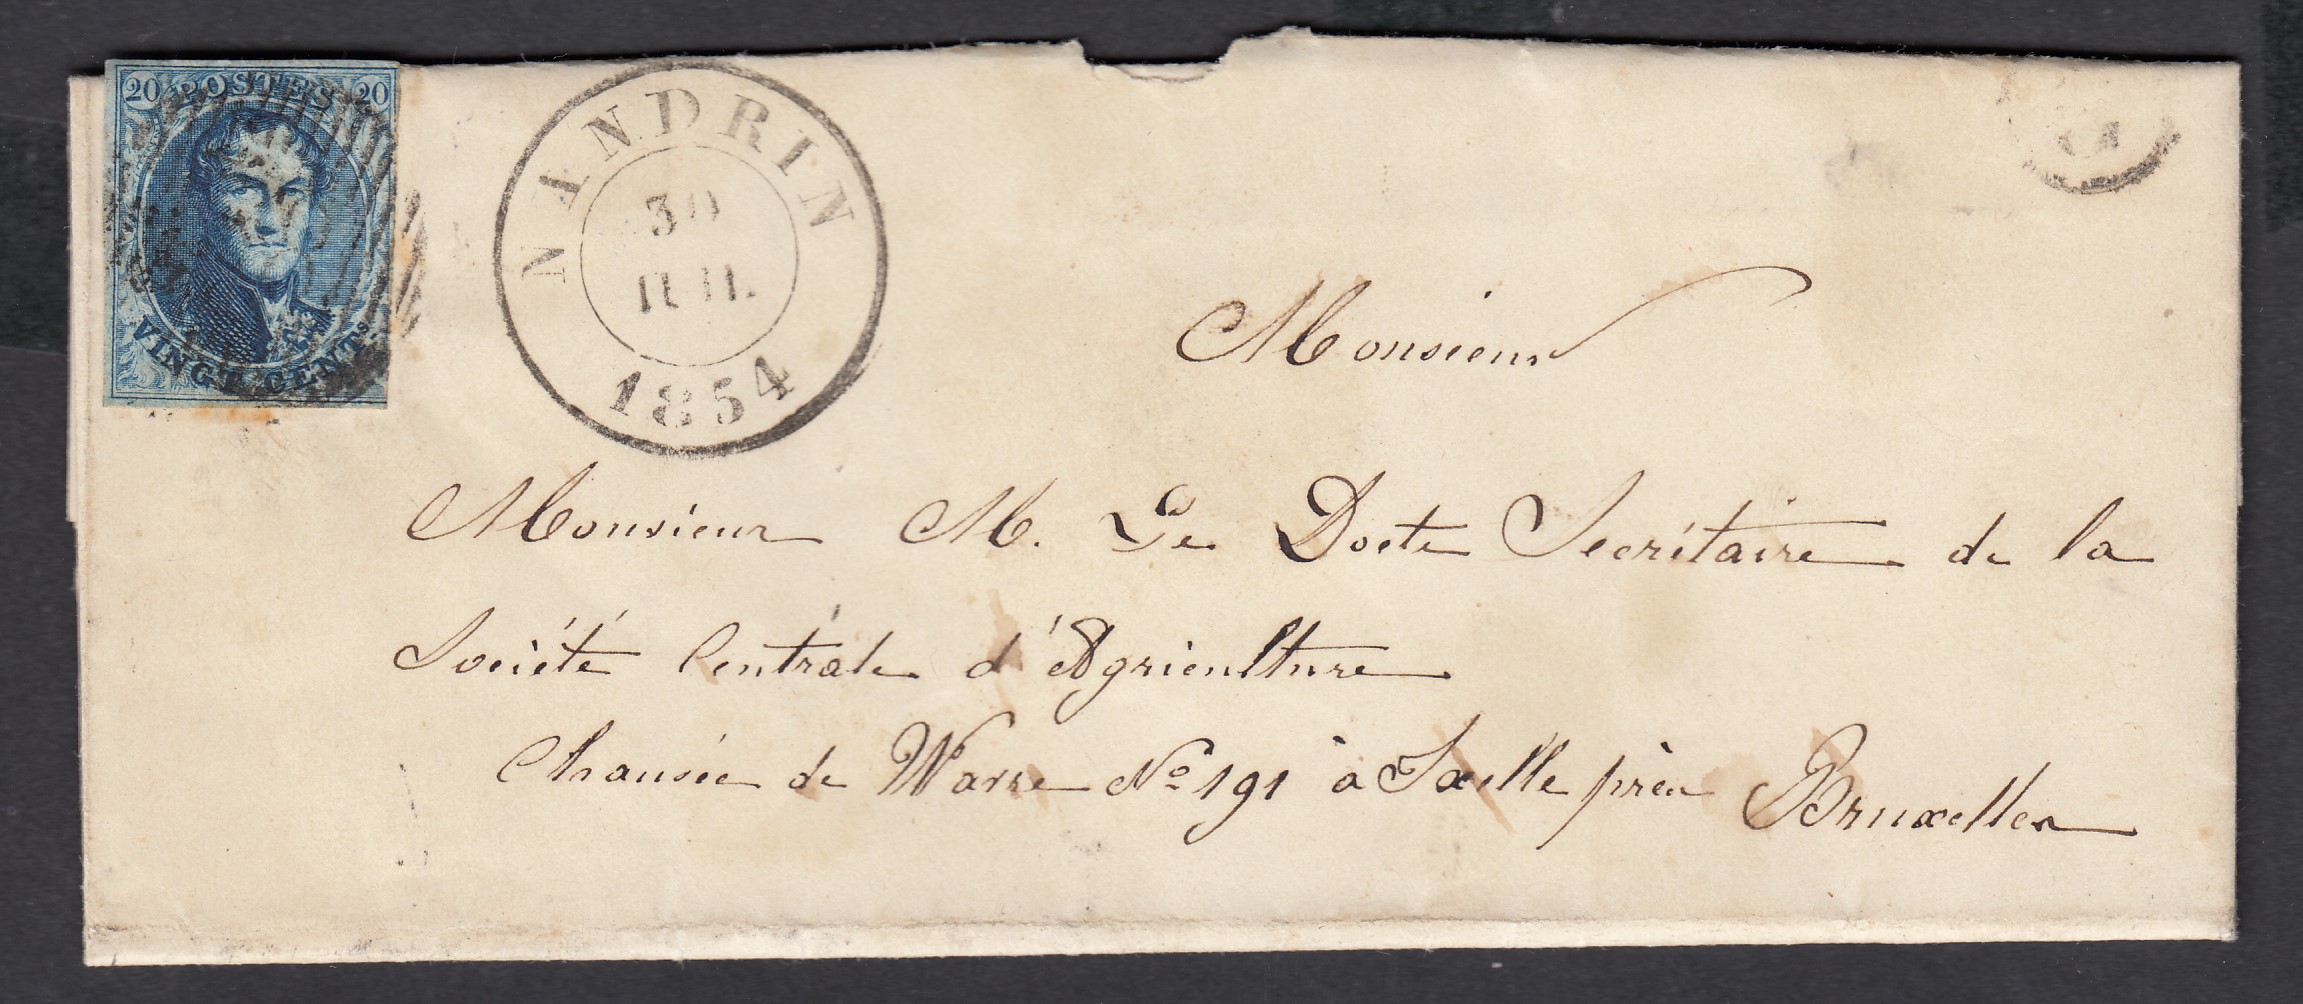 20 POSTES 20
VINGT CENTS
NANDRIN
30
JUIL.
1854
Monsieur
Monsieur M. Le Docte Secrétaire de la
Société Centrale d'Agriculture
Chausée de Wavre N° 191 à Ixelle près Bruxelles